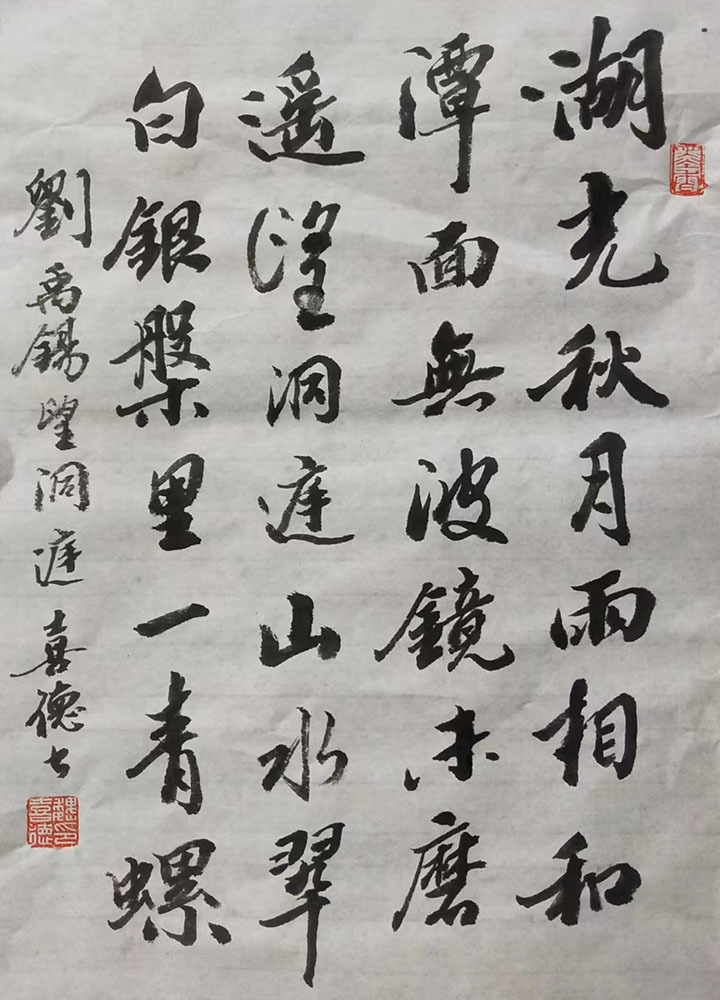 湖光秋月雨相和
潭面無波鏡未磨
遥望洞庭山水翠
白銀槃里一青螺
劉禹錫望洞庭 喜德书
魏喜德印